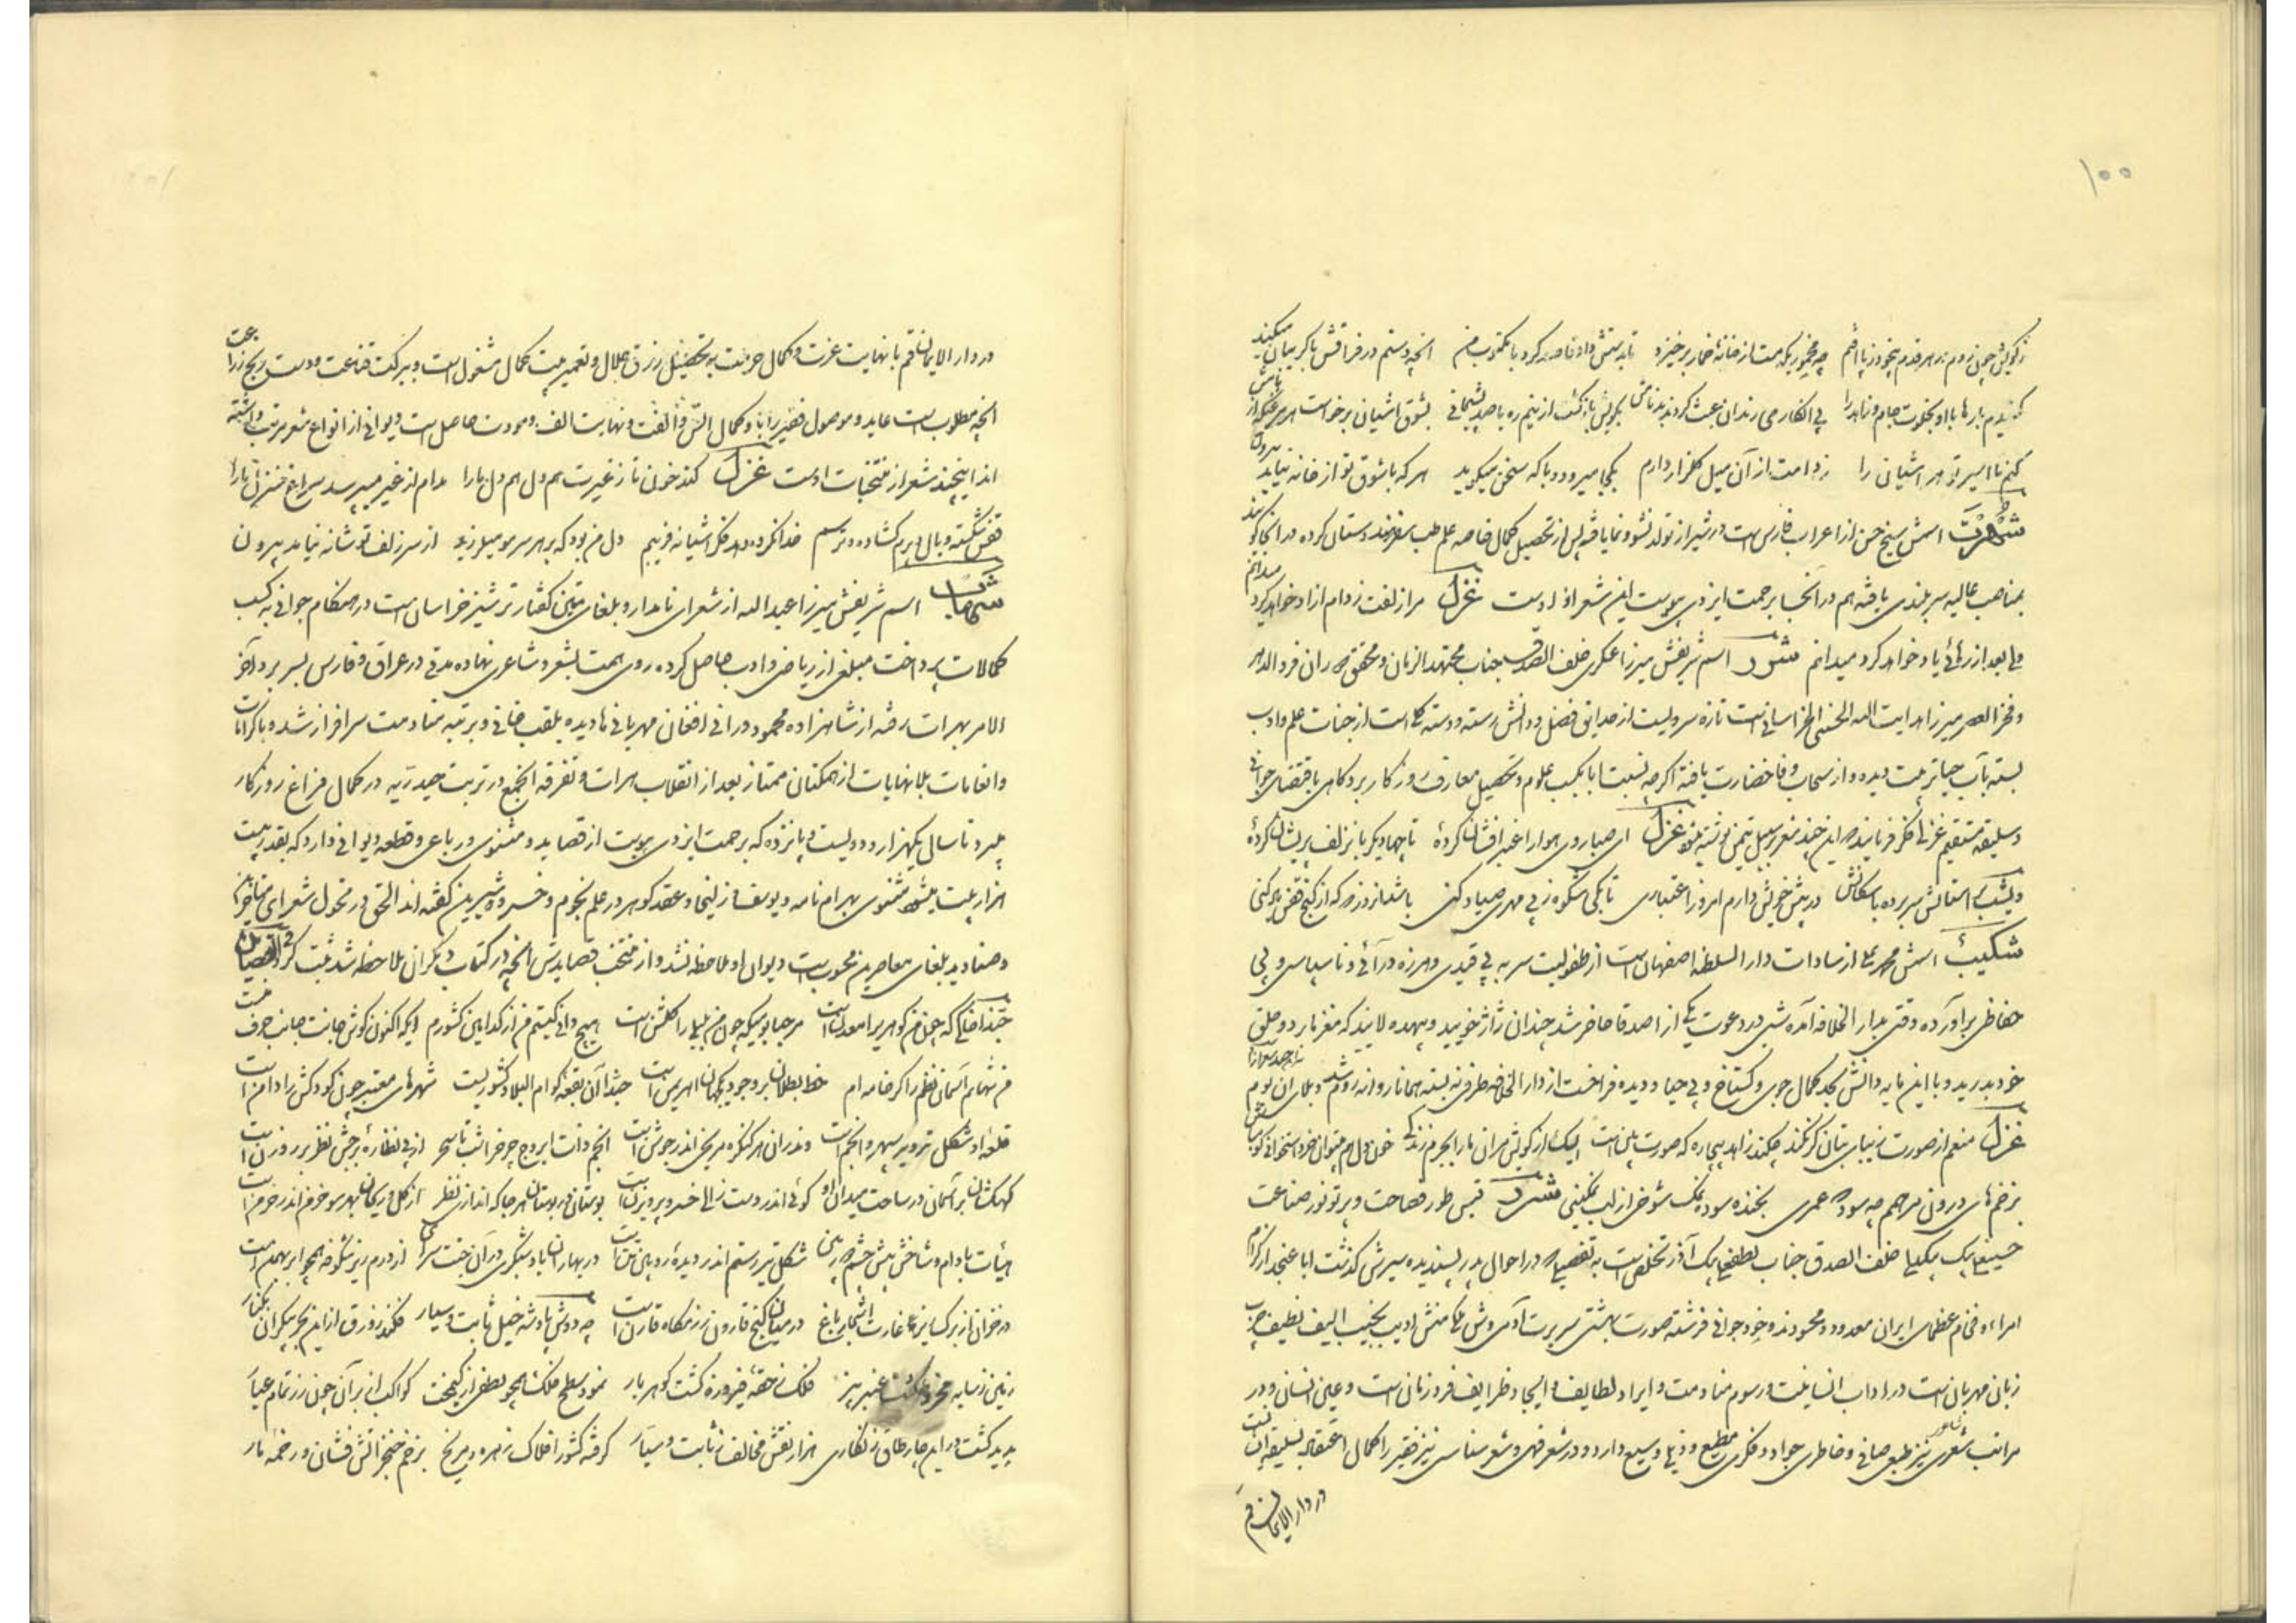 ۱۰۰
ز کویش چون روم بهر قدم بیخود ز پا افتم چه مخموریکه مست از خانهٔ خمار برخیزد تا بدستش داد قاصد کرد با مکتوب من آنچه دستم در فراقش با گریبان میکند
کشیدیم بارها با او بخلوت جام و زاهد را پی انکار می رندان بعث کردند بدنامش بکویش بازگشت از بیم ره با صد پشیمانی بشوق آشیان برخاست
کنم تا اسیر تو هر آشیانی را ندامت از آن میل گلزار دارم بکجا میرود و با که سخن میگوید هر که با شوق تو از خانه نیاید بیرون
شهرت اسمش شیخ حسن از اعراب فارس است در شیراز تولد و نشو و نما یافته پس از تحصیل کمال خاصه علم طب سفر هندوستان کرده در آنجا
بمناصب عالیه سربلندی یافته هم در آنجا برحمت ایزدی پیوست این شعر از اوست غزل مرا زلفت ز دام آزاد خواهد کرد میدانم
ولی بعد از رهائی یاد خواهد کرد میدانم اسم شریفش میرزا عسکری خلف الصدق جناب مجتهد الزمان و محقق دوران فرد الدهر
و فخر العصر میرزا هدایت الله الحسنی الخراسانی است تازه سرویست از حدایق فضل و دانش رسته و دسته گلی است از جنات علم و ادب
بسته بآب حیا تربیت دیده و از سحاب وفا خضارت یافته اگرچه نسبت ابا بکسب علوم و تحصیل معارف روزگار برد گاهی باقتضای جوانی
و سلیقه مستقیم غزلی فکر فرمایند این چند شعر بر سبیل تیمن نوشته غزل ای صبا روی هوا را عنبر افشان کردهٔ تا چها دیگر بآن زلف پریشان کردهٔ
در پیش خویش دارم امروز اعتباری تا بکی شکوه ز بی مهری صیاد کنی باش تا روزی که از کنج قفس یاد کنی
شکیب اسمش محمد علی از سادات دار السلطنه اصفهان است از طفولیت سر به بی قیدی و هرزه درآئی و ناسپاسی و بی
حفاظی برآورده وقتی بدار الخلافه آمده شبی در دعوت یکی از اصدقا حاضر شد چندان ژاژ خویید و بیهده لایید که مغز یار و حلق
خود بدرید و با این مایه دانش بحد کمال جری و گستاخ و بی حیا و دیده فراخست از دار الخلافه طرفی نبسته همانا روانه روم شد
غزل منعم از صورت زیبای بتان گر نکند چکند زاهد بیچاره که صورت بین است
زخمهای درونی مرهم چه سود عمری بخنده سوده نمک شوخی از لب نمکینی شرر قبس طور فصاحت و پرتو نور صناعت
حسینعلی بیک بیگدلی خلف الصدق جناب لطفعلی بیک آذر تخلص است به تفصیلی در احوال پدر پسندیده سیرش گذشت ابا عنجد از کرام
امراء و فخام عظمای ایران معدود و محسود بند و خود جوانی فرشته صورت بهشتی سریرت آدمی وش ملک منش ادیب نجیب الیف لطیف
زبان مهربان است در آداب انسانیت و رسوم منادمت و ایراد لطایف و ایجاد ظرایف فرد زمان است و عین انسان و در
مراتب شعری و شاعری نیز طبعی صافی و خاطری جواد و فکری مطیع و ذهنی وسیع دارد و در شعر فهمی و شعر شناسی نیز فقیر را کمال اعتقاد بسلیقه
در دار الایمان قم
در دار الایمان قم با نهایت عزت و کمال حرمت بوتحصیل رزق حلال و تعمیر بیت کمال مشغول است و ببرکت قناعت و دست رنج زراعت
آنچه مطلوب است عاید و موصول فقیر را با او کمال انس و الفت و نهایت الف و مودت حاصل است دیوانی از انواع شعر مرتب داشته
اند اینچند شعر از منتخبات اوست غزل کند خون تا ز غیرت هم دل هم دل ما را مدام از غیر میپرسد سراغ منزل ما را
قفس شکسته و بال و پرم گشاده و ترسم خدا نکرده دهد فکر آشیانه فریبم دل من بود که بر هر سر مو میلرزید از سر زلف تو شانه نیامد بیرون
شهاب اسم شریفش میرزا عبد الله از شعرای نامدار و بلغای متین گفتار ترشیز خراسان است در هنگام جوانی به کسب
کمالات پرداخت مبلغی از ریاضی و ادب حاصل کرده روی همت بشعر و شاعری نهاده مدتی در عراق و فارس بسر برد آخر
الامر بهرات رفته از شاهزاده محمود درانی افغان مهربانی ها دیده بلقب خانی و برتبه منادمت سرافراز شده و باکرامات
و انعامات بلا نهایات از همگنان ممتاز بعد از انقلاب هرات و تفرقه آنجمع در تربت حیدریه در کمال فراغ روزگار
میبرد تا سال یکهزار و دویست و پانزده که برحمت ایزدی پیوست از قصاید و مثنوی و رباعی و قطعه دیوانی دارد که بقدر بیست
هزار بیت میشود مثنوی بهرام نامه و یوسف و زلیخا و عقد گوهر در علم نجوم و خسرو و شیرین گفته اند الحق در فحول شعرای متاخرین
و صنادید بلغای معاصرین محسوبست دیوان او ملاحظه نشد و از منتخب قصایدش آنچه در کتاب دیگران ملاحظه شد ثبت گردید
حبذا کلکی که چون من گوهریرا معدنست مرحبا بومیکه چون من بلبلی را گلشن است هیچ دانی کیستم من از کدامین کشورم ایکه اکنون گوش جانت جانب حرف منست
من شهابم آسمان نظم را کز خامه ام خط بطلان بر وجود یکجهان اهریمن است حبذا آن بقعه کو ام البلاد کشوریست شهرهای معتبر چون کودکش را دامن است
قلعه او شکل تدویر سپهر و انجمست وندران هر کنگره مریخی اندر جوشن است از پی نظارهٔ برجش نظر بر روزن است
کهکشان بر آسمان در ساحت میدان او گوئی اندر دست زالی خسرو پرویزن است بوستان در بوستان هر جا که اندازی نظر از گل و ریحان بهر سو خرمن اندر خرمن است
هیأت بادام و شاخش پیش چشم دوربین شکل تیر رستم اندر دیدهٔ رویین تن است در بهاران باد و شبگیری در آن جنت سرای از درم ریز شکوفه همچو ابر بهمن است
در خزان از برگسا بر غارت اشجار باغ در میان گنج قارون رزمگاه قارن است چه دوش پادشه خیل ثابت و سیار فکند زورق از این بحر بیکران بکنار
زمین ز سایهٔ مخروط گشت عنبر بیز فلک ز حقهٔ فیروزه گشت گوهر بار نمود سطح فلک همچو نطعی از کیمخت کواکب از بر آن چون زر تمام عیار
پدید گشت در این چار طاق زنگاری هزار نقش مخالف ز ثابت و سیار گرفته کشور افلاک زهره و مریخ بزخم خنجر آتش فشان و زخمه تار